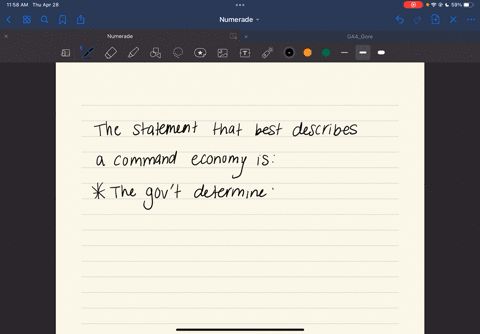 11:58 AM Thu Apr 28
59%
Numerade
Numerade
GA4_Gore
The statement that best describes
a command economy is:
* The gov't determine